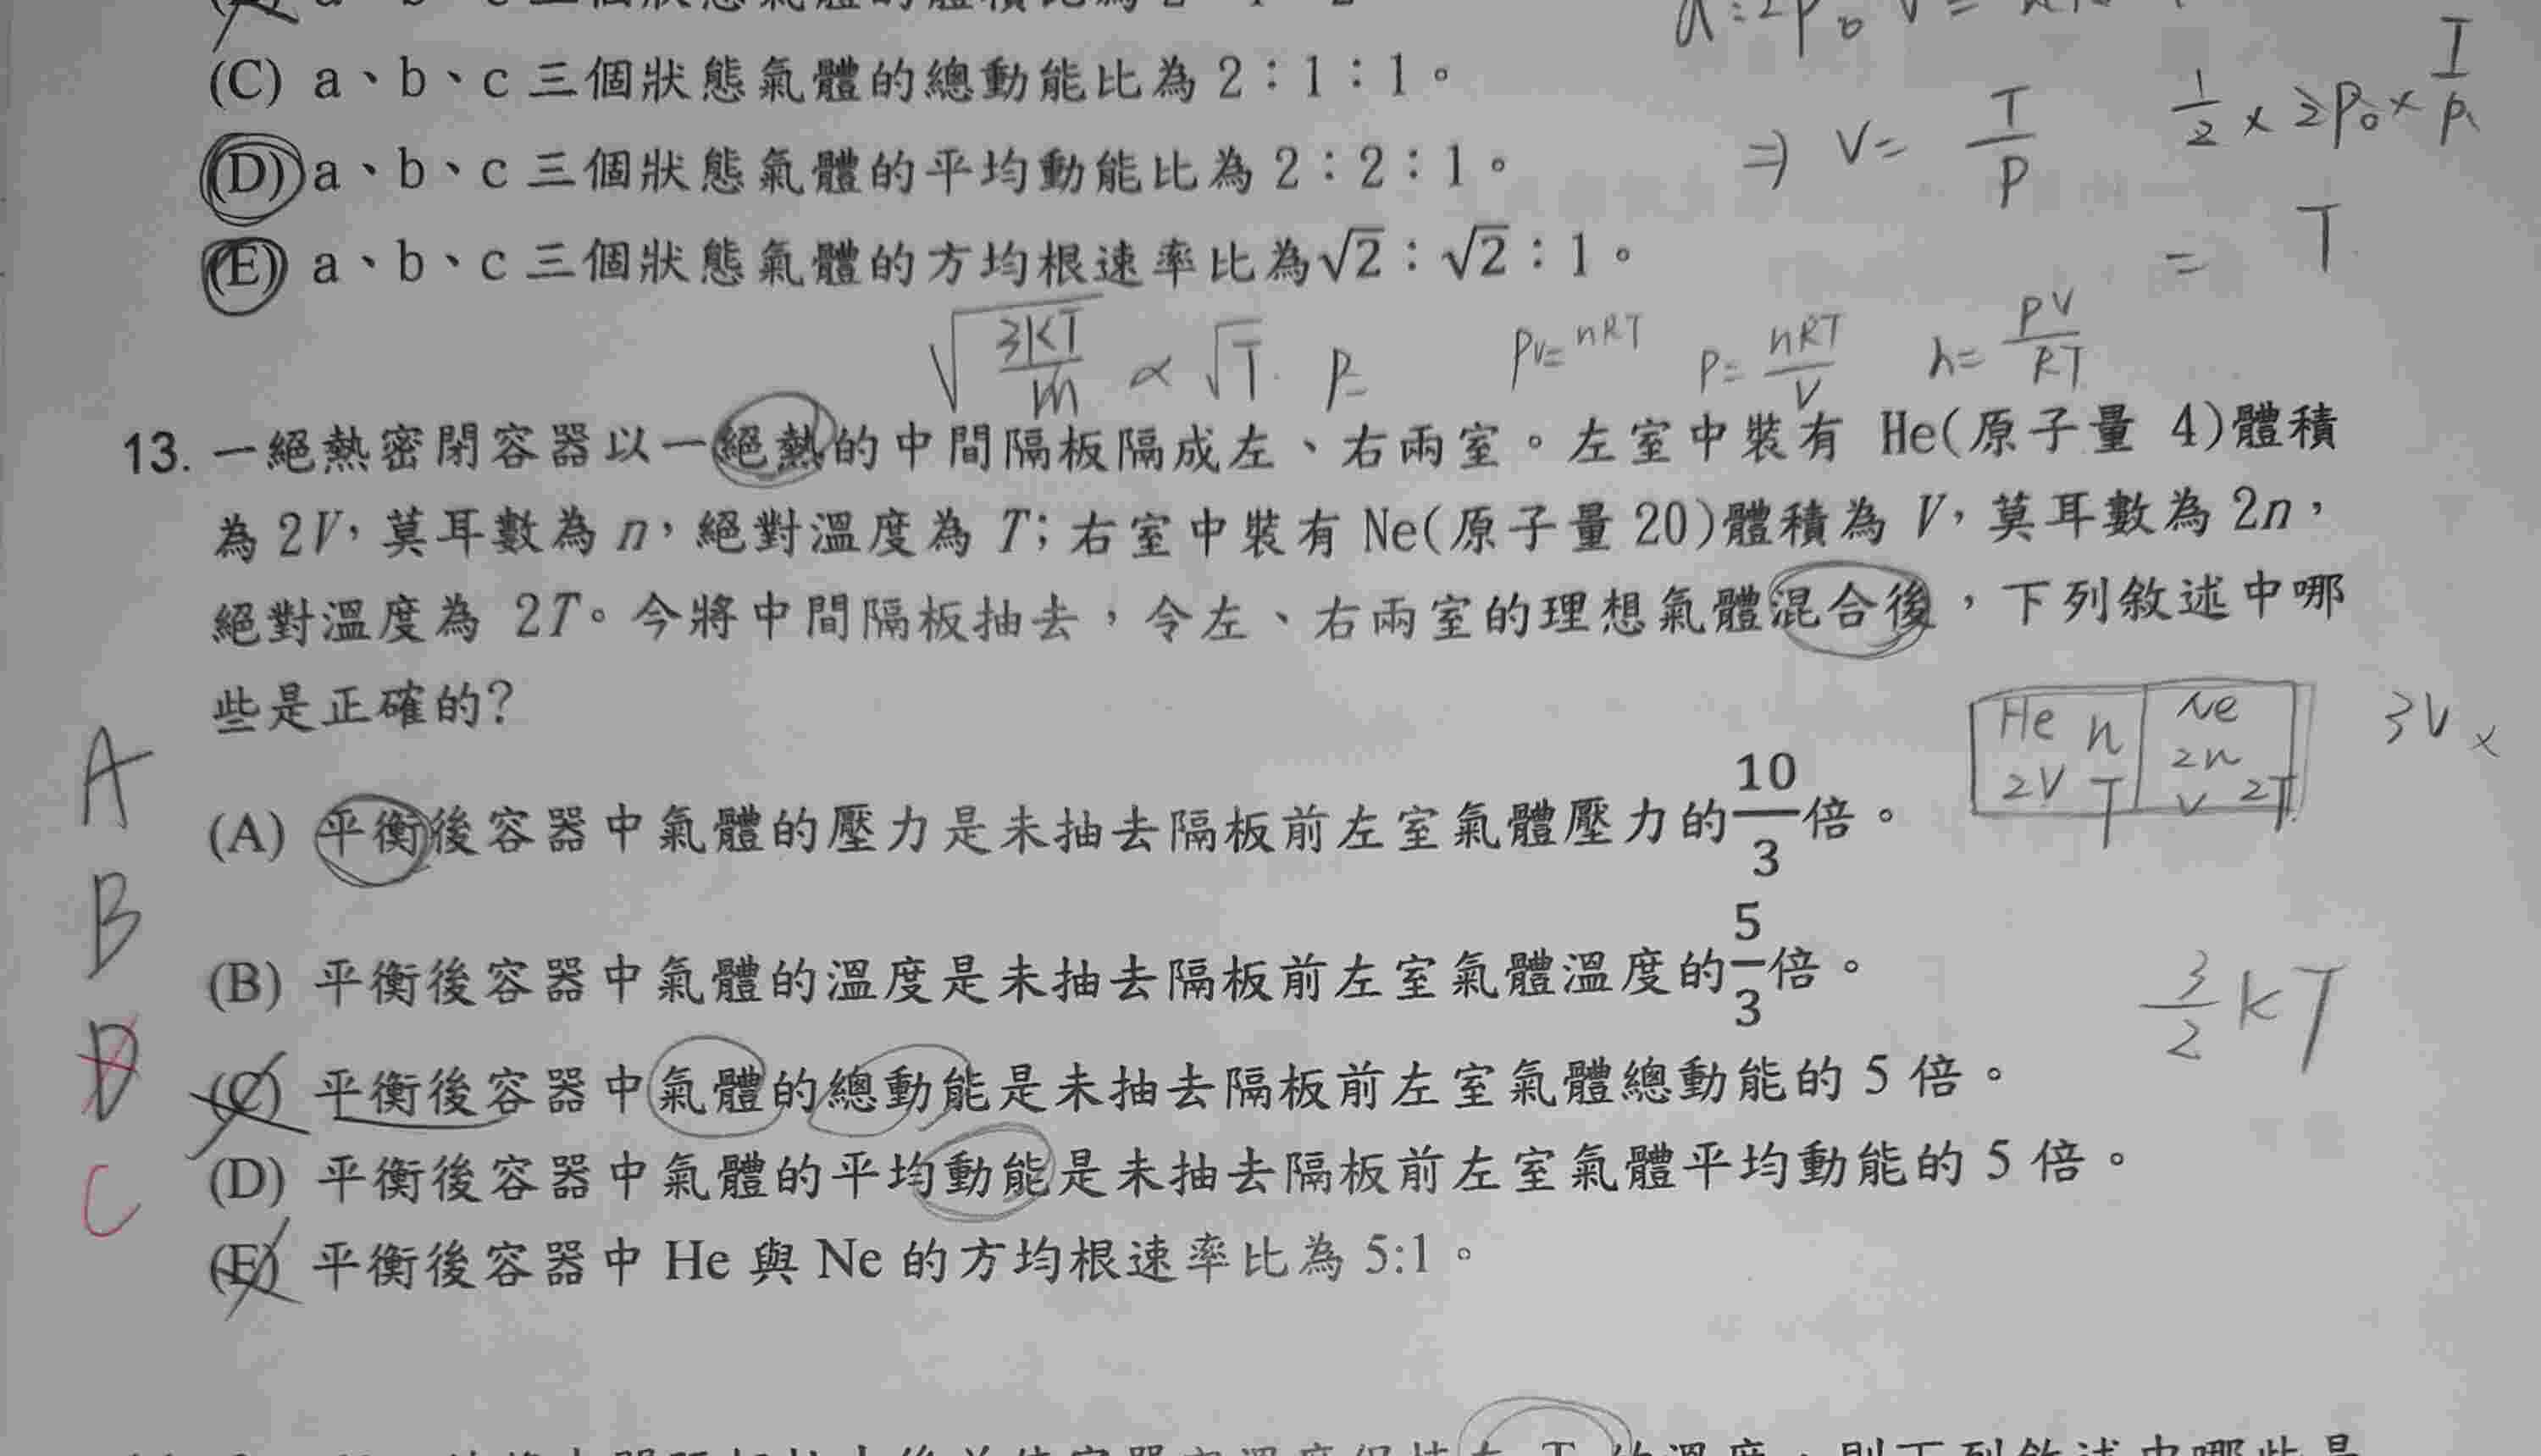 (C) a、b、c 三個狀態氣體的總動能比為 2:1:1。
(D) a、b、c 三個狀態氣體的平均動能比為 2:2:1。
(E) a、b、c 三個狀態氣體的方均根速率比為√2:√2:1。
⇒ V= T/P
1/2 × 2P₀ ×
= T
√(3KT/m) ∝ √T
PV=nRT P= nRT/V n= PV/RT
13. 一絕熱密閉容器以一絕熱的中間隔板隔成左、右兩室。左室中裝有 He(原子量 4)體積
為 2V,莫耳數為 n,絕對溫度為 T;右室中裝有 Ne(原子量 20)體積為 V,莫耳數為 2n,
絕對溫度為 2T。今將中間隔板抽去,令左、右兩室的理想氣體混合後,下列敘述中哪
些是正確的?
He n Ne 3V
2V T 2n V 2T
A
(A) 平衡後容器中氣體的壓力是未抽去隔板前左室氣體壓力的10/3倍。
B
(B) 平衡後容器中氣體的溫度是未抽去隔板前左室氣體溫度的5/3倍。
3/2 kT
D
(C) 平衡後容器中氣體的總動能是未抽去隔板前左室氣體總動能的 5 倍。
C
(D) 平衡後容器中氣體的平均動能是未抽去隔板前左室氣體平均動能的 5 倍。
(E) 平衡後容器中 He 與 Ne 的方均根速率比為 5:1。